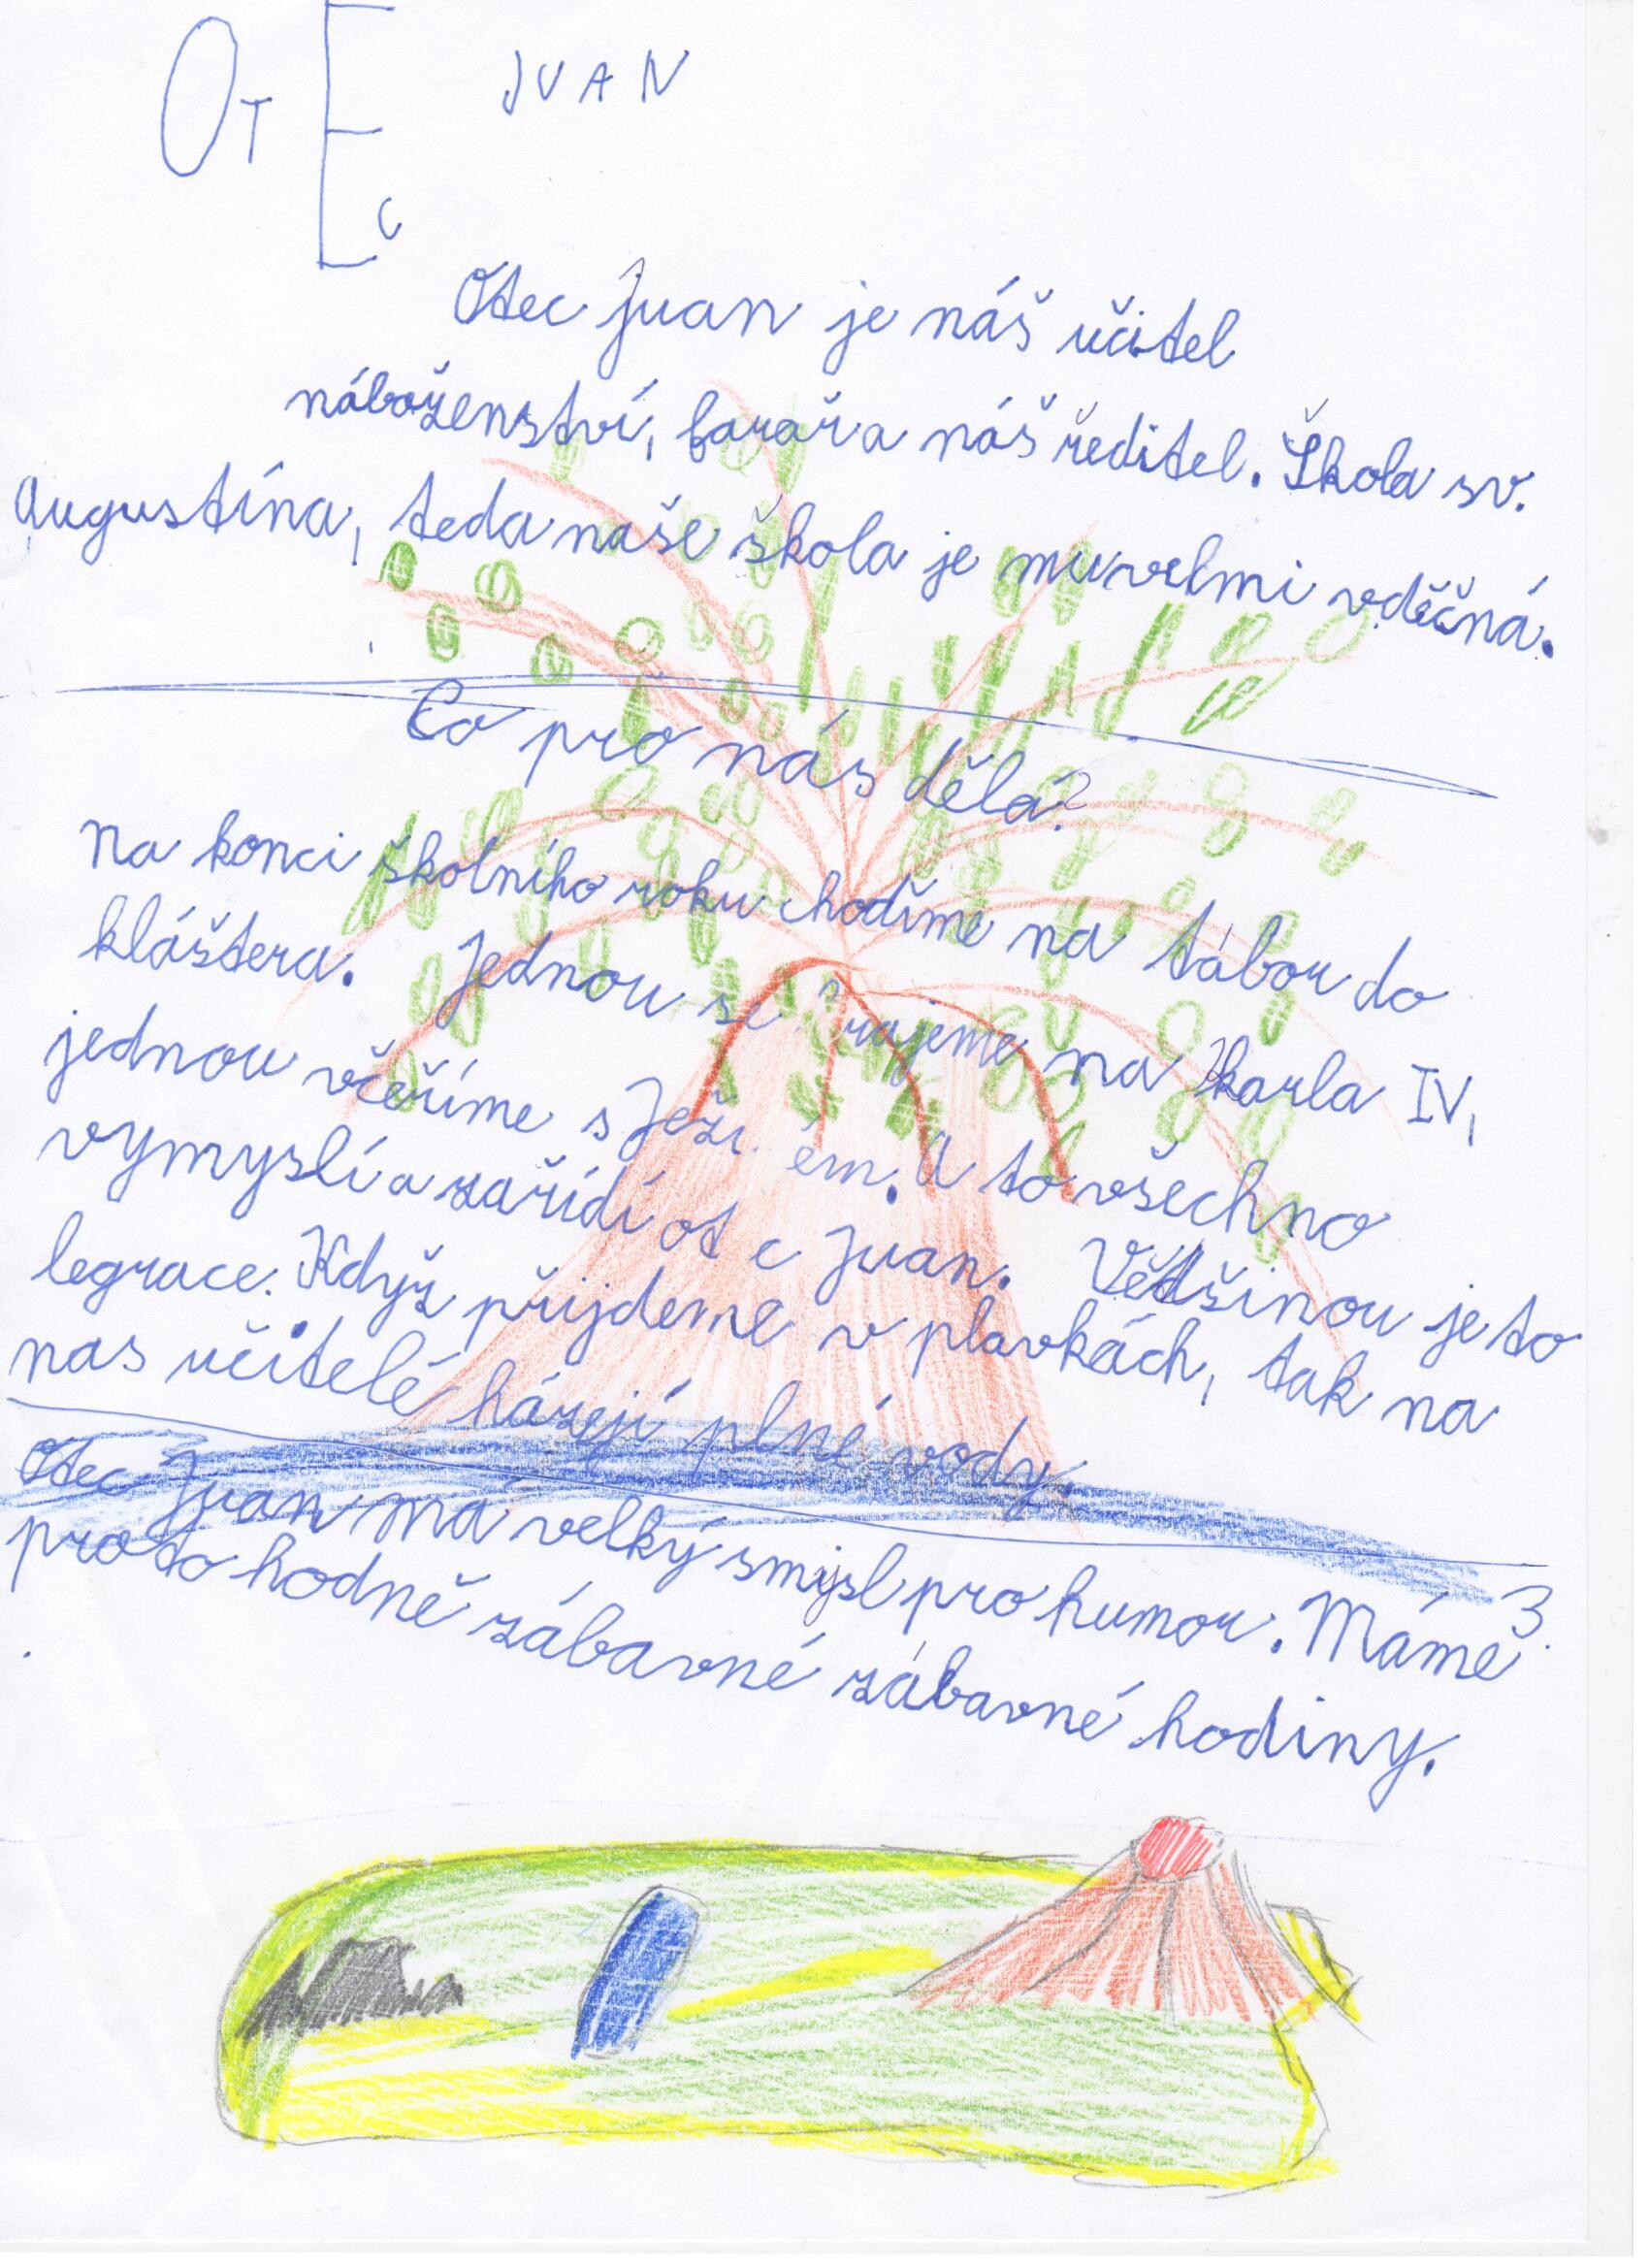 OTEC JUAN
Otec Juan je náš učitel
náboženství, farář a náš ředitel. Škola sv.
Augustína, teda naše škola je mu velmi vděčná.
Co pro nás dělá?
Na konci školního roku chodíme na tábor do
kláštera. Jednou se hrajeme na Karla IV,
jednou večeříme s Ježíšem. A to všechno
vymyslí a zařídí otec Juan. Většinou je to
legrace. Když přijdeme v plavkách, tak na
nas učitelé házejí plné vody.
Otec Juan ma velký smysl pro humor. Máme
proto hodně zábavné zábavné hodiny.